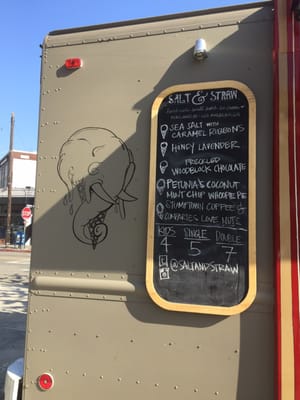 SALT & STRAW
SEA SALT WITH
CARAMEL RIBBONS
HONEY LAVENDER
FRECKLED
WOODBLOCK CHOCOLATE
PETUNIA'S COCONUT
MINT CHIP WHOOPIE PIE
STUMPTOWN COFFEE &
COMPANIES LOVE NUTS
KIDS SINGLE DOUBLE
4 5 7
@SALTANDSTRAW